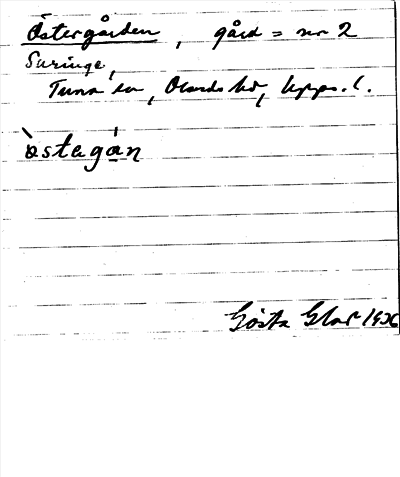 Östergården, gård = nr 2
Suringe,
Tuna sn, Olands hd, Upps. l.
òstagán
Gösta Glas 1936